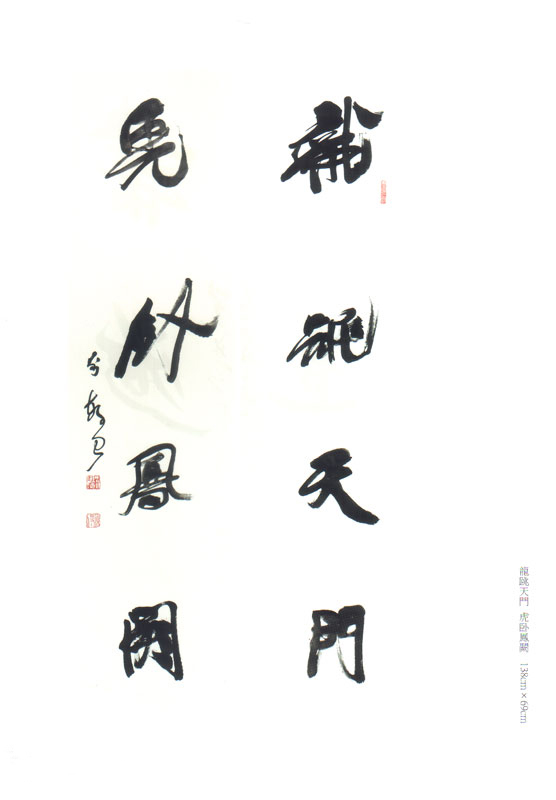 龍跳天門
虎卧鳳閣
龍跳天門 虎卧鳳閣 138cm×69cm